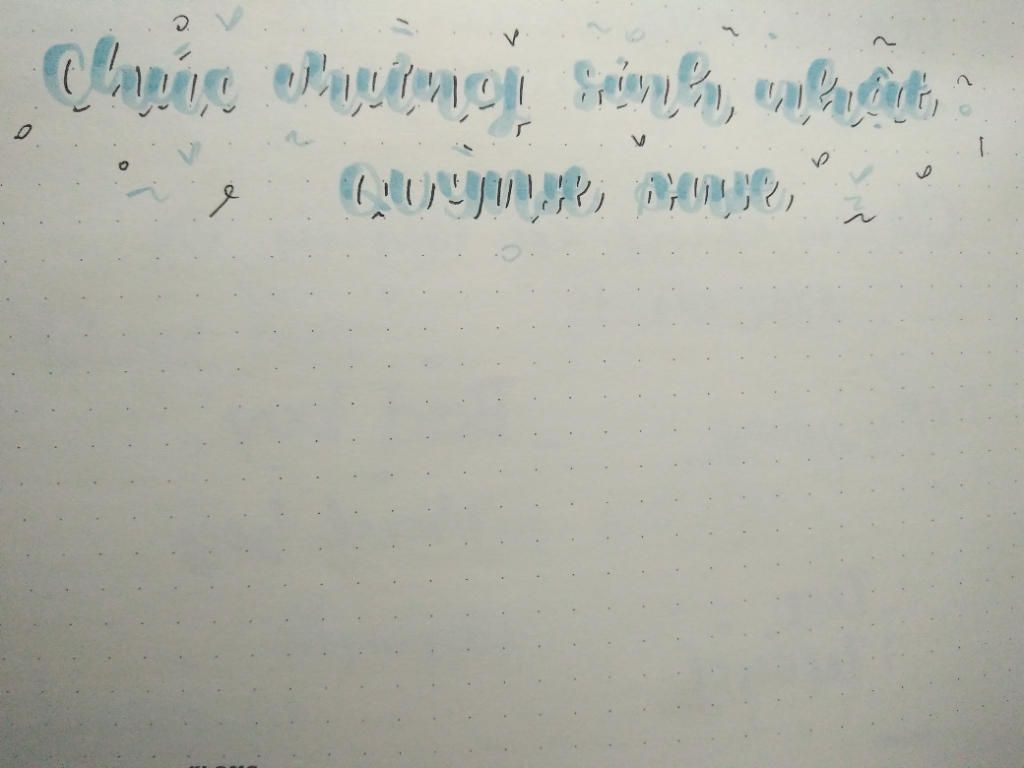 Chúc mừng sinh nhật
Quỳnh